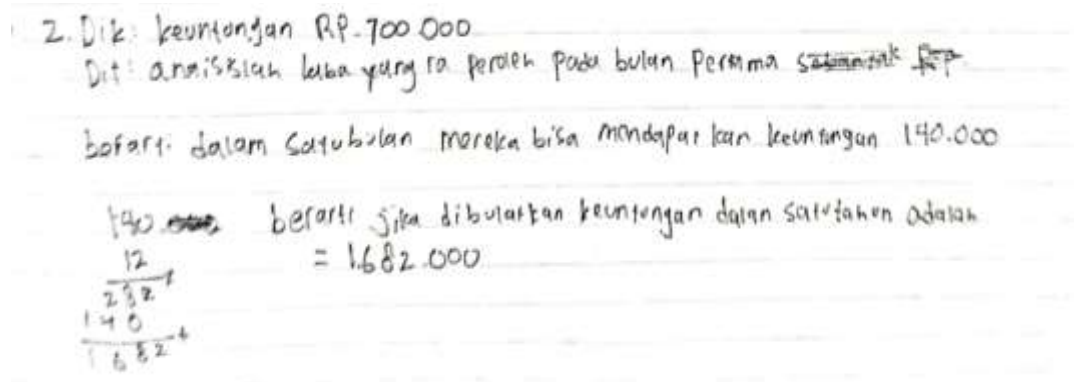 2. Dik: keuntungan RP.700.000
Dit: anaisislah laba yang ia peroleh pada bulan Pertama
berarti dalam satubulan mereka bisa mendapatkan keuntungan 140.000
140 berarti jika dibulatkan keuntungan dalan satutahun adalah
12 = 1.682.000
282
140
1682